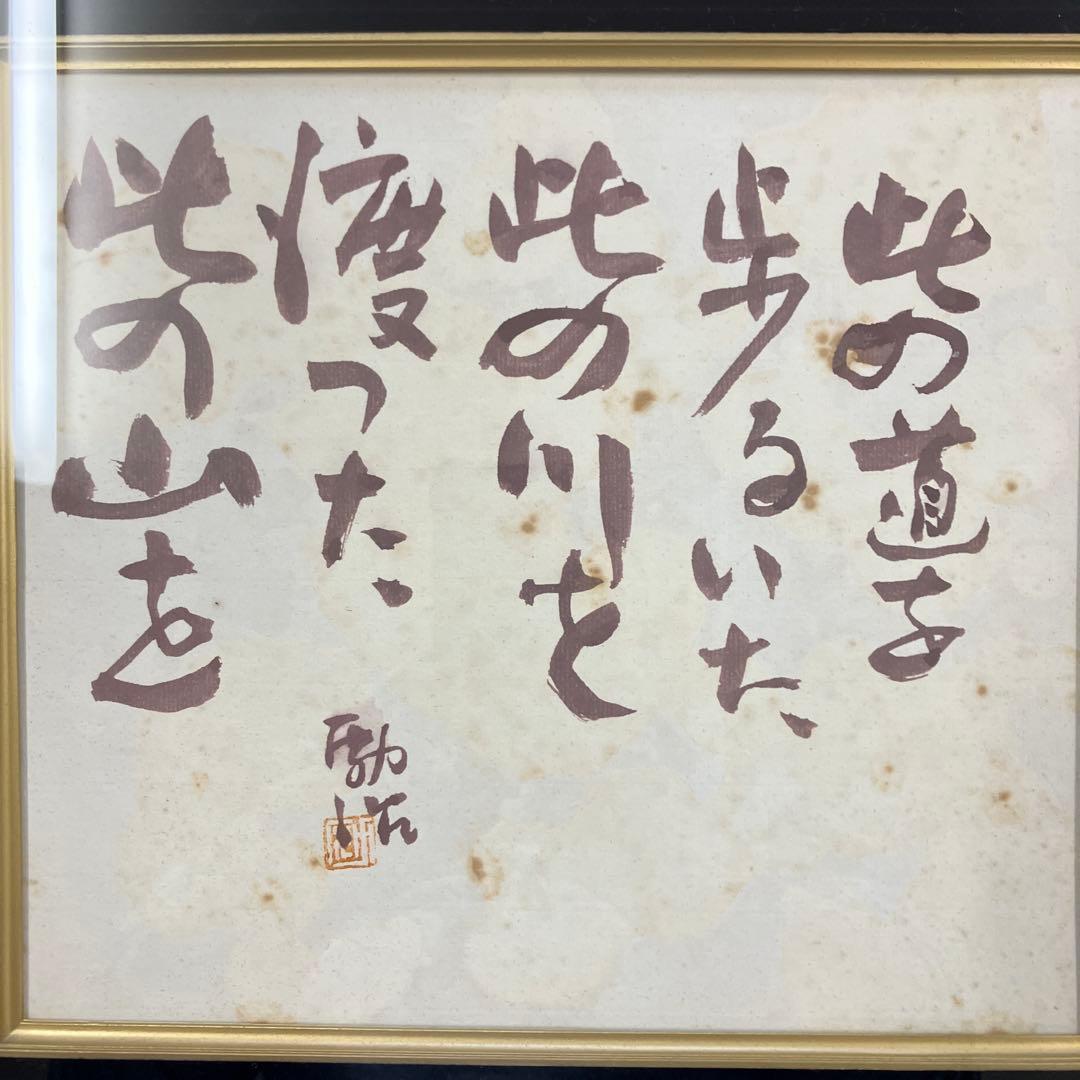 此の道を
歩るいた
此の川を
渡った
此の山を
勘治